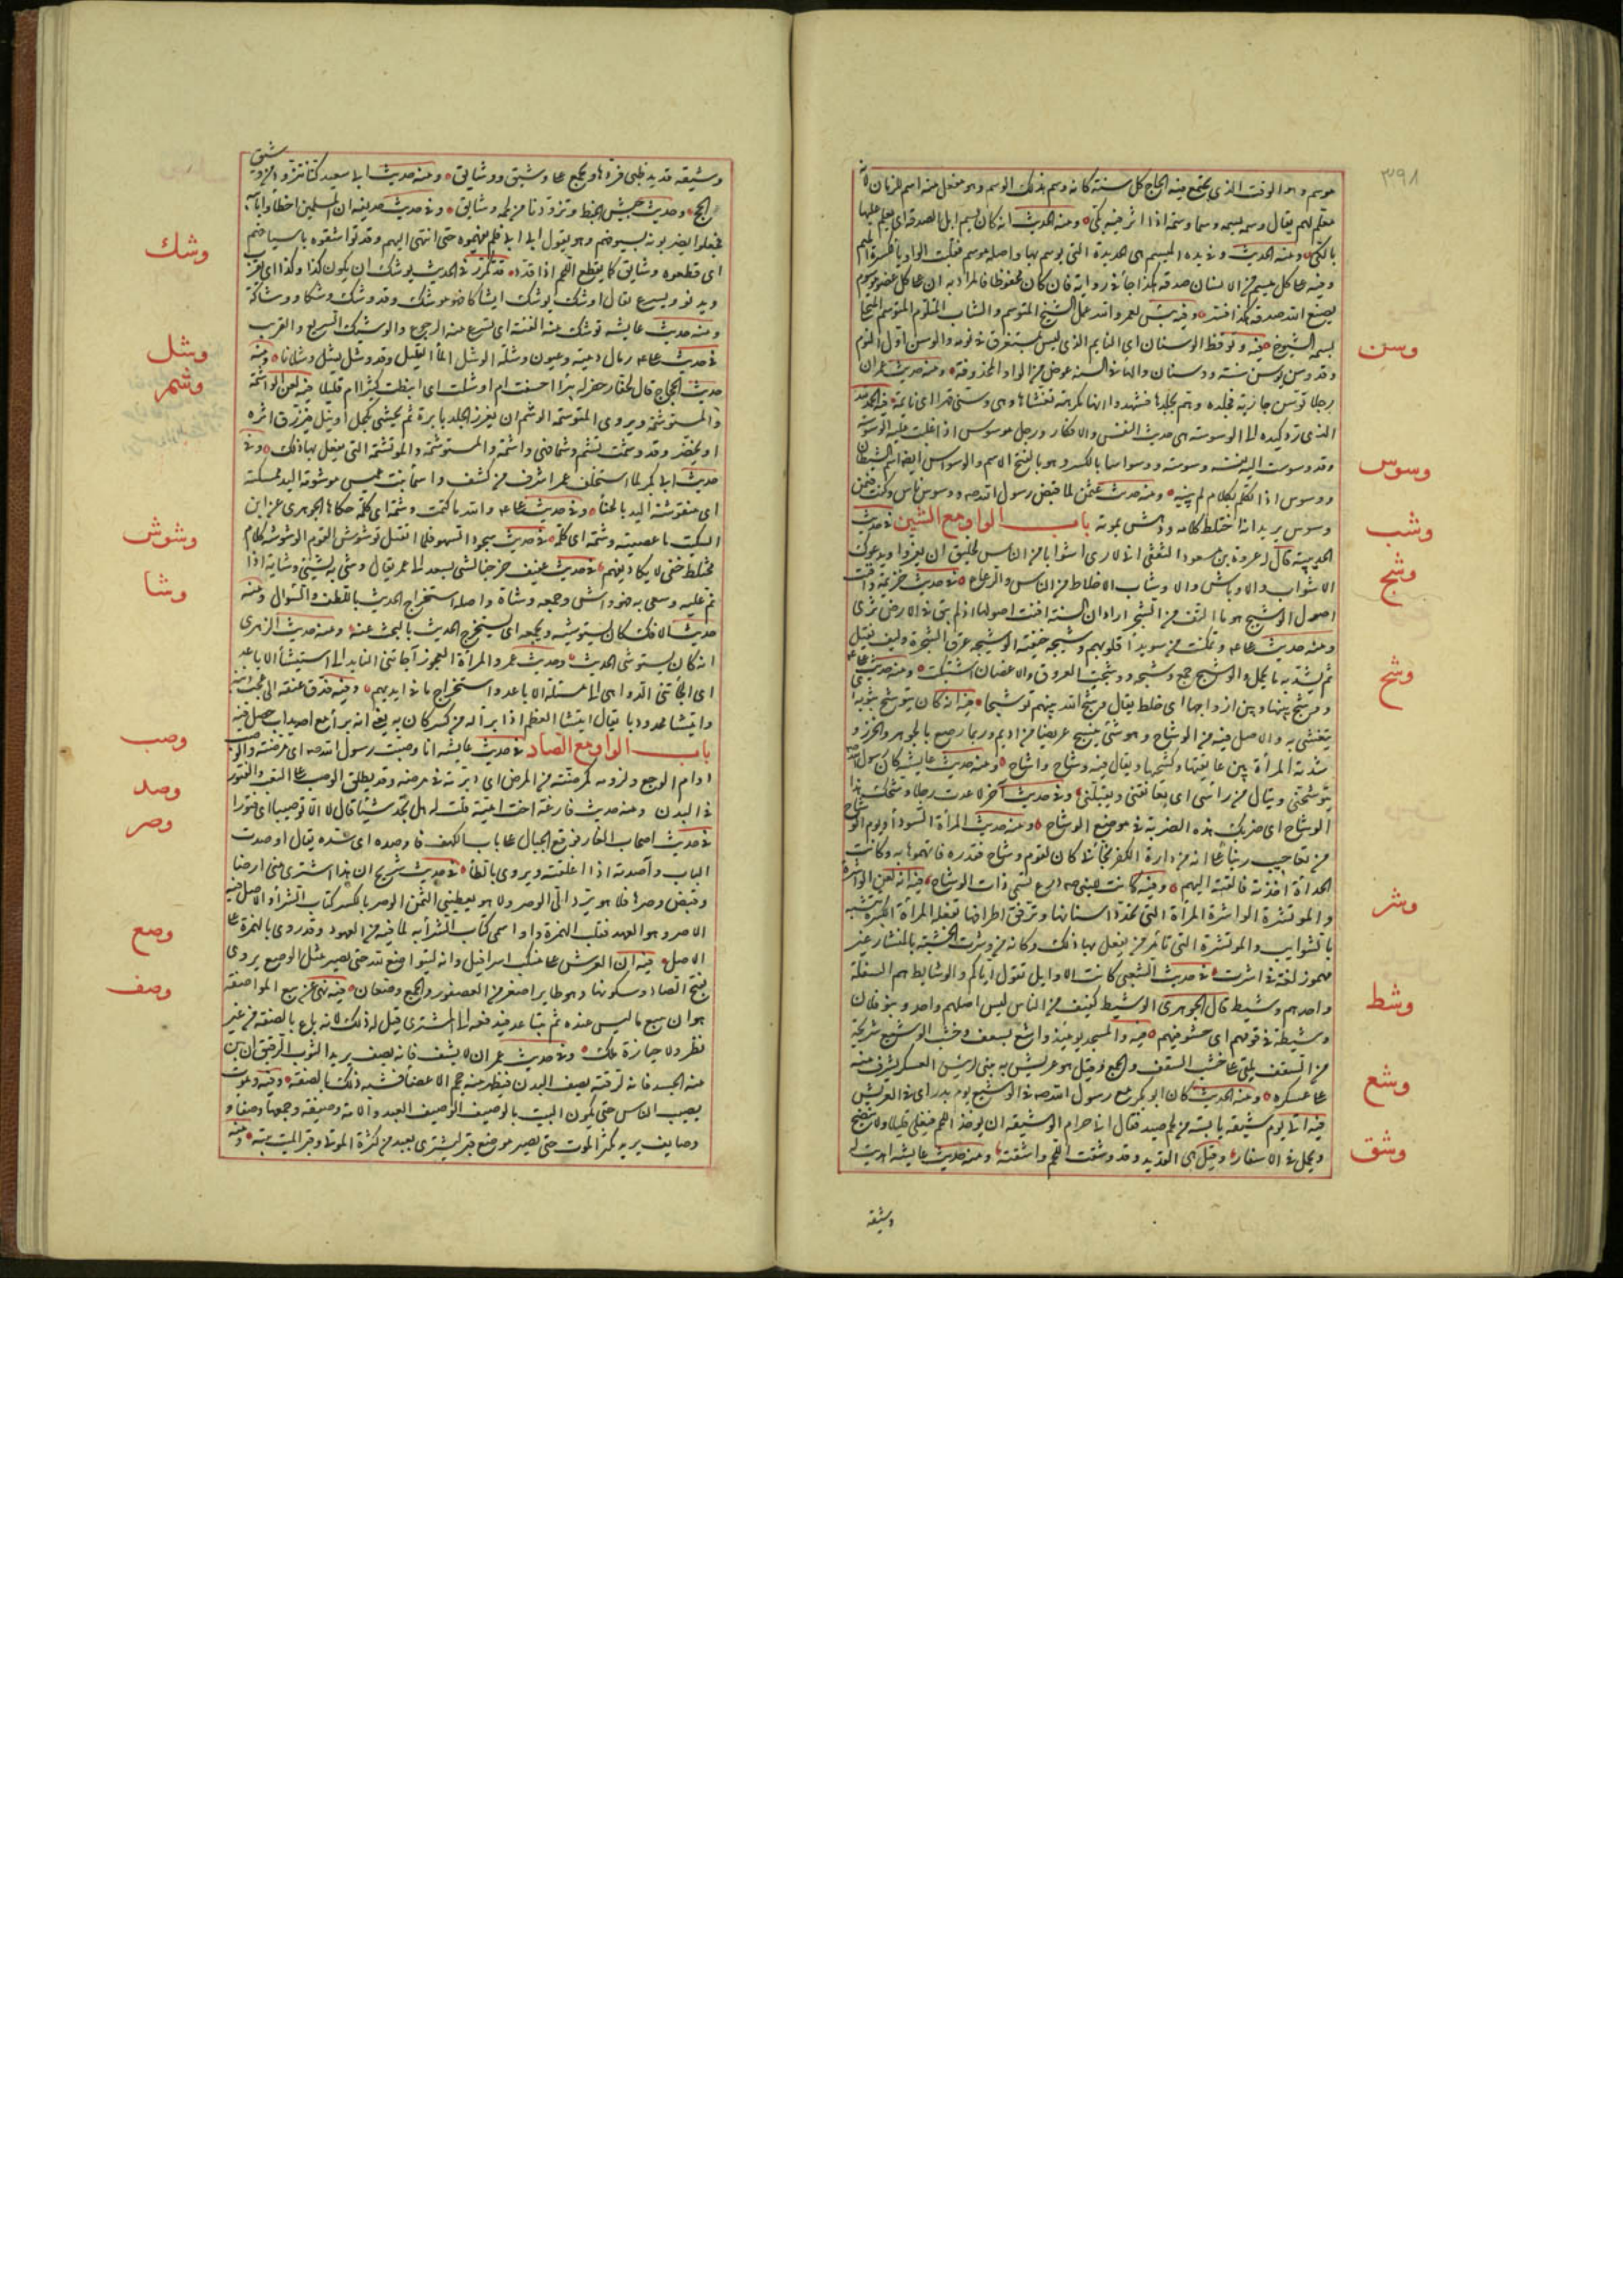 ٣٩٨
موسم وهو الوقت الذى يجتمع فيه الحاج كل سنة كانه وسم بذلك الوسم وهو مفعل منه اسم للزمان لانه
معلم لهم يقال وسمه يسمه وسما وسمة اذا اثر فيه بكى ومنه الحديث انه كان يسم ابل الصدقة اى يعلم عليها
بالكى ومنه الحديث وفى يده الميسم هى الحديدة التى يوسم بها واصله موسم فقلبت الواو ياء لكسرة الميم
وفيه على كل ميسم من الانسان صدقة هكذا جاء فى رواية فان كان محفوظا فالمراد به ان على كل عضو موسوم
بصنع الله صدقة هكذا فسر وفيه بئس لعمرو الله عمل الشيخ المتوسم والشاب المتلوم المتوسم المتحلى
بسمة الشيوخ فيه وتوقظ الوسنان اى النايم الذى ليس بمستغرق فى نومه والوسن اول النوم
وسن
وقد وسن يوسن سنة ووسنان والهاء فى السنه عوض من الواو المحذوفة ومنه حديث عمر ان
رجلا توسن جارية فجلده وهم بجلدها فشهدوا انها مكرهة تغشاها وهى وسنى قهرا اى نايمة فيه الحمد لله
الذى رد كيده الى الوسوسة هى حديث النفس والافكار ورجل موسوس اذا غلبت عليه الوسوسة
وسوس
وقد وسوست اليه نفسه وسوسة ووسواسا بالكسر وهو بالفتح الاسم والوسواس ايضا اسم الشيطان
ووسوس اذا تكلم بكلام لم يبينه ومنه حديث عثمن لما قبض رسول الله صه وسوس ناس وكنت فيمن
وسوس يريد انه اختلط كلامه ودهش بموته باب الواو مع الشين فى حديث
وشب
الحديبية قال له عروة بن مسعود الثقفى انى لارى اشوابا من الناس لخليق ان يفروا ويدعوك
الاشواب والاوباش والاوشاب الاخلاط من الناس والرعاع فى حديث خزيمة وافنت
وشج
اصول الوشيج هو ما التف من الشجر اراد ان السنة افنت اصولها اذ لم يبق فى الارض ثرى
ومنه حديث على وتمكنت من سويداء قلوبهم وشيجة خيفته الوشيجه عرق الشجرة وليف يفتل
ثم يشد به ما يحمل والوشيج جمع وشيجه ووشجت العروق والاغصان اشتبكت ومنه حديث على
ووشج بينها وبين ازواجها اى خلط يقال وشج الله بينهم توشيجا فيه انه كان يتوشح بثوبه اى
وشح
يتغشى به والاصل فيه من الوشاح وهو شئ ينسج عريضا من اديم وربما رصع بالجوهر والخرز و
تشده المرأة بين عاتقيها وكشحيها ويقال فيه وشاح واشاح ومنه حديث عايشه كان رسول الله صه
يتوشحنى وينال من راسى اى يعانقنى ويقبلنى وفى حديث آخر لا عدمت رجلا وشحك هذا
الوشاح اى ضربك هذه الضربة فى موضع الوشاح ومنه حديث المرأة السوداء ويوم الوشاح
من تعاجيب ربنا على انه من دارة الكفر نجانى كان لقوم وشاح فقدوه فاتهموها به وكانت
الحداة اخذته فالقته اليهم وفيه كانت للنبى صه درع تسمى ذات الوشاح فيه انه لعن الواشرة
وشر
والموتشرة الواشرة المرأة التى تحدد اسنانها وترقق اطرافها تفعله المرأة الكبيرة تتشبه
بالشواب والموتشرة التى تأمر من يفعل بها ذلك وكانه من وشرت الخشبة بالمنشار غير
مهموز لغة فى اشرت فى حديث الشعبى كانت الاوايل تقول اياكم والوشايظ هم السفلة
وشظ
واحدهم وشيظ قال الجوهرى الوشيظ لفيف من الناس ليس اصلهم واحد وبنو فلان
وشيظة فى قومهم اى حشو فيهم فيه والمسجد يومئذ وشيع بسعف وخشب الوشيع شريجة
وشع
من السعف يلقى على خشب السقف والجمع وقيل هو عريش يبنى لرئيس العسكر يشرف منه
على عسكره ومنه الحديث كان ابو بكر مع رسول الله صه فى الوشيع يوم بدر اى فى العريش
فيه اتى يوم بوشيقة يابسة من لحم صيد فقال انى حرام الوشيقة ان يوخذ اللحم فيغلى قليلا ولا ينضج
وشق
ويحمل فى الاسفار وقيل هى القديد وقد وشقت اللحم واتشقته ومنه حديث عايشه اهديت له
وشيقة
وشيقة قديد ظبى فردها ويجمع على وشيق ووشايق ومنه حديث ابى سعيد كنا نتزود من وشيق
الحج وحديث جيش الخبط وتزودنا من لحمه وشايق وفى حديث حذيفه ان المسلمين اخطاوا بابيه
فجعلوا يضربونه بسيوفهم وهو يقول ابى ابى فلم يفهموه حتى انتهى اليهم وقد تواشقوه باسيافهم
اى قطعوه وشايق كما يقطع اللحم اذا قدد قد تكرر فى الحديث يوشك ان يكون كذا وكذا اى يقرب
وشك
ويدنو ويسرع يقال اوشك يوشك ايشاكا فهو موشك وقد وشك وشكا ووشاكة
ومنه حديث عايشه توشك منه الفيئة اى تسرع منه الرجوع والوشيك السريع والقريب
فى حديث على رمال دمثة وعيون وشلة الوشل الماء القليل وقد وشل يشل وشلانا ومنه
وشل
حديث الحجاج قال لحفار حفر له بئرا اخسفت ام اوشلت اى انبطت كثيرا ام قليلا فيه لعن الواشمة
وشم
والمستوشمة ويروى الموتشمة الوشم ان يغرز الجلد بابرة ثم يحشى بكحل او نيل فيزرق اثره
او يخضر وقد وشمت تشم وشما فهى واشمة والمستوشمة والموتشمة التى يفعل بها ذلك وفى
حديث ابى بكر لما استخلف عمر اشرف من كنيف واسماء بنت عميس موشومة اليد ممسكته
اى منقوشة اليد بالحناء وفى حديث على والله ما كتمت وشمة اى كلمة حكاها الجوهرى عن ابن
السكيت ما عصيته وشمة اى كلمة فى حديث سجود السهو فلما انفتل توشوش القوم الوشوشة كلام
وشوش
مختلط خفى لا يكاد يفهم فى حديث عفيف خرجنا نشى بسعد الى عمر يقال وشى به يشى وشاية اذا
وشا
نم عليه وسعى به فهو واش وجمعه وشاة واصله استخراج الحديث باللطف والسوال ومنه
حديث الافك كان يستوشيه ويجمعه اى يستخرج الحديث بالبحث عنه ومنه حديث الزهرى
انه كان يستوشى الحديث وحديث عمر والمرأة العجوز اجاءتنى النايد الى استيشاء الاباعد
اى الجأتنى الدواهى الى مسئلة الاباعد واستخراج ما فى ايديهم وفيه فدق عنقه الى عجب ذنبه
وايتشا محدودبا يقال ايتشا العظم اذا برأ من كسر كان به يعنى انه برأ مع احديداب حصل فيه
باب الواو مع الصاد فى حديث عايشه انا وصبت رسول الله صه اى مرضته والوصب
وصب
دوام الوجع ولزومه كمرضته من المرض اى دبرته فى مرضه وقد يطلق الوصب على التعب والفتور
فى البدن ومنه حديث فارعة اخت امية قلت له هل تجد شيئا قال لا الا توصيبا اى فتورا
فى حديث اصحاب الغار فوقع الجبل على باب الكهف فاوصده اى سده يقال اوصدت
وصد
الباب وآصدته اذا اغلقته ويروى بالطاء فى حديث شريح ان هذا اشترى منى ارضا
وصر
وقبض وصرها فلا هو يرد الى الوصر ولا هو يعطينى الثمن الوصر بالكسر كتاب الشراء والاصل فيه
الاصر وهو العهد فقلب الهمزة واوا سمى كتاب الشراء به لما فيه من العهود وقد روى بالهمزة على
الاصل فيه ان العرش على منكب اسرافيل وانه ليتواضع لله حتى يصير مثل الوصع يروى
وصع
بفتح الصاد وسكونها وهو طاير اصغر من العصفور والجمع وصعان فيه نهى عن بيع المواصفة
وصف
هو ان يبيع ما ليس عنده ثم يبتاعه فيدفعه الى المشترى قيل له ذلك لانه باع بالصفة من غير
نظر ولا حيازة ملك وفى حديث عمر ان لا يشف فانه يصف يريد الثوب الرقيق ان لم يبن
منه الجسد فانه لرقته يصف البدن فيظهر منه حجم الاعضاء فشبه ذلك بالصفة وفيه وموت
يصيب الناس حتى يكون البيت بالوصيف الوصيف العبد والامة وصيفة وجمعها وصفاء و
وصايف يريد يكثر الموت حتى يصير موضع قبر يشترى بعبد من كثرة الموتى وقبر الميت بيته ومنه